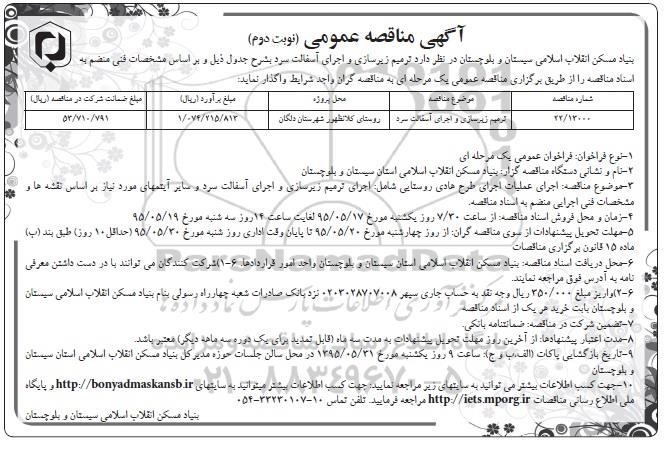 آگهی مناقصه عمومی (نوبت دوم)
بنیاد مسکن انقلاب اسلامی سیستان و بلوچستان در نظر دارد ترمیم زیرسازی و اجرای آسفالت سرد بشرح جدول ذیل و بر اساس مشخصات فنی منضم به
اسناد مناقصه را از طریق برگزاری مناقصه عمومی یک مرحله ای به مناقصه گران واجد شرایط واگذار نماید:
شماره مناقصه موضوع مناقصه محل پروژه مبلغ برآورد (ریال) مبلغ ضمانت شرکت در مناقصه (ریال)
۲۲/۱۳۰۰۰ ترمیم زیرسازی و اجرای آسفالت سرد روستای کلانظهور شهرستان دلگان ۱/۰۷۴/۲۱۵/۸۱۳ ۵۳/۷۱۰/۷۹۱
۱-نوع فراخوان: فراخوان عمومی یک مرحله ای
۲-نام و نشانی دستگاه مناقصه گزار: بنیاد مسکن انقلاب اسلامی استان سیستان و بلوچستان
۳-موضوع مناقصه: اجرای عملیات اجرای طرح هادی روستایی شامل: اجرای ترمیم زیرسازی و اجرای آسفالت سرد و سایر آیتمهای مورد نیاز بر اساس نقشه ها و
مشخصات فنی اجرایی منضم به اسناد مناقصه.
۴-زمان و محل فروش اسناد مناقصه: از ساعت ۷/۳۰ روز یکشنبه مورخ ۹۵/۰۵/۱۷ لغایت ساعت ۱۴روز سه شنبه مورخ ۹۵/۰۵/۱۹
۵-مهلت تحویل پیشنهادات از سوی مناقصه گران: از روز چهارشنبه مورخ ۹۵/۰۵/۲۰ تا پایان وقت اداری روز شنبه مورخ ۹۵/۰۵/۳۰ (حداقل۱۰ روز) طبق بند (ب)
ماده ۱۵ قانون برگزاری مناقصات
۶-محل دریافت اسناد مناقصه: بنیاد مسکن انقلاب اسلامی استان سیستان و بلوچستان واحد امور قراردادها. ۶-۱)شرکت کنندگان می توانند با در دست داشتن معرفی
نامه به آدرس فوق مراجعه نمایند.
۶-۲)واریز مبلغ ۳۵۰/۰۰۰ ریال وجه نقد به حساب جاری سپهر ۰۲۰۳۰۲۸۷۰۷۰۰۸ نزد بانک صادرات شعبه چهارراه رسولی بنام بنیاد مسکن انقلاب اسلامی سیستان
و بلوچستان بابت خرید هر یک از اسناد مناقصه
۷-تضمین شرکت در مناقصه: ضمانتنامه بانکی.
۸-مدت اعتبار پیشنهادها: از آخرین روز مهلت تحویل پیشنهادات به مدت سه ماه (قابل تمدید برای یک دوره سه ماهه دیگر) معتبر باشد.
۹-تاریخ بازگشایی پاکات (الف،ب و ج): ساعت ۹ روز یکشنبه مورخ ۱۳۹۵/۰۵/۳۱ در محل سالن جلسات حوزه مدیرکل بنیاد مسکن انقلاب اسلامی استان سیستان
و بلوچستان
۱۰-جهت کسب اطلاعات بیشتر می توانید به سایتهای زیر مراجعه نمایید: جهت کسب اطلاعات بیشتر میتوانید به سایتهای http://bonyadmaskansb.ir و پایگاه
ملی اطلاع رسانی مناقصات http://iets.mporg.ir مراجعه فرمایید. تلفن تماس ۱۰-۰۵۴-۳۳۲۳۰۱۰۷
بنیاد مسکن انقلاب اسلامی سیستان و بلوچستان